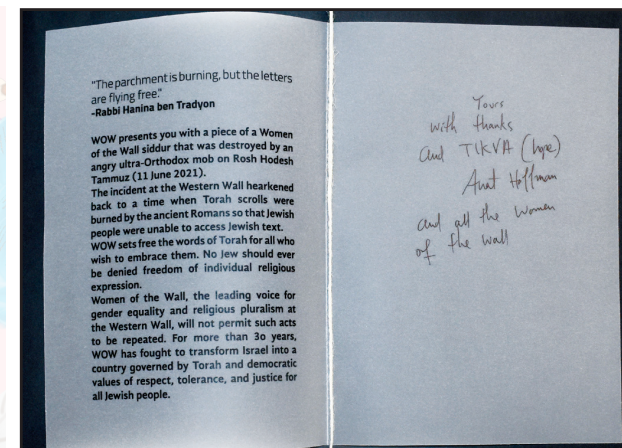 "The parchment is burning, but the letters
are flying free."
-Rabbi Hanina ben Tradyon
WOW presents you with a piece of a Women
of the Wall siddur that was destroyed by an
angry ultra-Orthodox mob on Rosh Hodesh
Tammuz (11 June 2021).
The incident at the Western Wall hearkened
back to a time when Torah scrolls were
burned by the ancient Romans so that Jewish
people were unable to access Jewish text.
WOW sets free the words of Torah for all who
wish to embrace them. No Jew should ever
be denied freedom of individual religious
expression.
Women of the Wall, the leading voice for
gender equality and religious pluralism at
the Western Wall, will not permit such acts
to be repeated. For more than 30 years,
WOW has fought to transform Israel into a
country governed by Torah and democratic
values of respect, tolerance, and justice for
all Jewish people.
Yours
with thanks
and TIKVA (hope)
Anat Hoffman
and all the women
of the wall